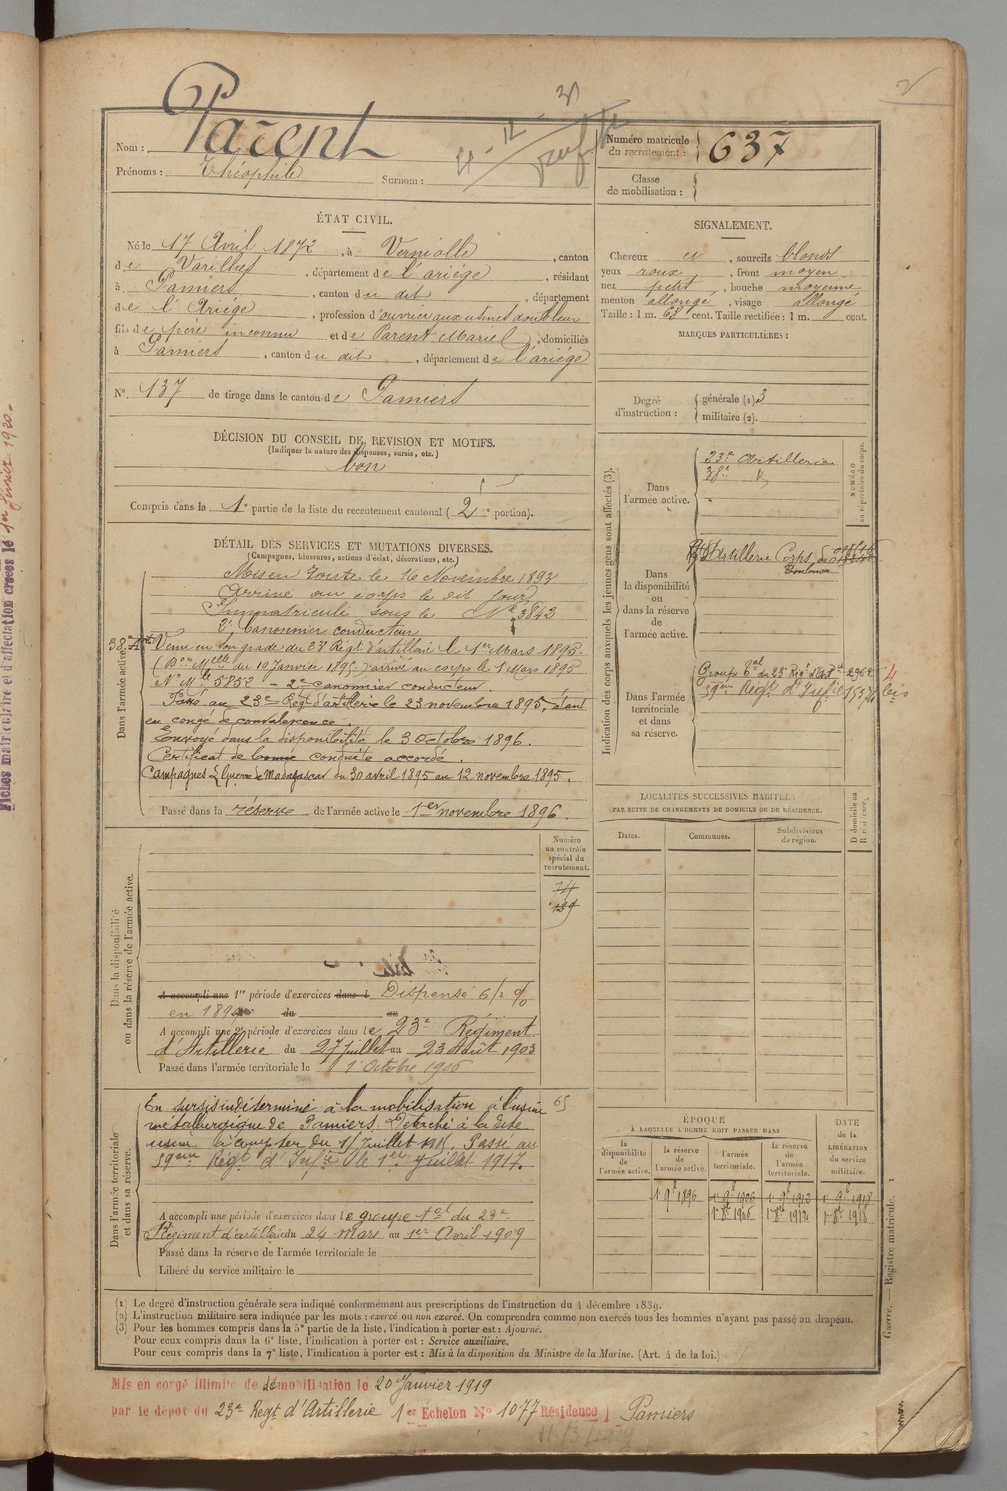 Nom : Parent
Prénoms : Théophile Surnom :
Numéro matricule du recrutement : 637
Classe de mobilisation :
ÉTAT CIVIL.
Né le 17 Avril 1872, à Verniolle, canton
de Varilhes, département de l'ariège, résidant
à Pamiers, canton du dit, département
de l'Ariège, profession d'ouvrier aux usines doubleur
fils de père inconnu et de Parent Marie, domiciliés
à Pamiers, canton du dit, département de l'ariège
N° 137 de tirage dans le canton de Pamiers
SIGNALEMENT.
Cheveux et, sourcils blonds
yeux roux, front moyen
nez petit, bouche moyenne
menton allongé, visage allongé
Taille : 1 m. 68 cent. Taille rectifiée : 1 m. cent.
MARQUES PARTICULIÈRES :
Degré d'instruction : générale (1) 3
militaire (2).
DÉCISION DU CONSEIL DE REVISION ET MOTIFS.
(Indiquer la nature des dispenses, sursis, etc.)
bon
Compris dans la 1e partie de la liste du recrutement cantonal (2e portion).
DÉTAIL DES SERVICES ET MUTATIONS DIVERSES.
(Campagnes, blessures, actions d'éclat, décorations, etc.)
Dans l'armée active.
Mis en route le 16 Novembre 1893
Arrivé au corps le dit jour
Immatriculé sous le N° 3843
2e Canonnier conducteur
38e Art. Venu en son grade du 23e Régt d'artillerie le 1er Mars 1895
du 10 Janvier 1895) arrivé au corps le 1 Mars 1895
N° Mle 5852 - 2e canonnier conducteur.
Passé au 23e Régt d'artillerie le 23 novembre 1895, étant
en congé de convalescence.
Envoyé dans la disponibilité le 3 Octobre 1896.
Certificat de bonne conduite accordé.
Campagnes Guerre de Madagascar du 30 avril 1895 au 12 novembre 1895.
Passé dans la réserve de l'armée active le 1er novembre 1896.
Indication des corps auxquels les jeunes gens sont affectés (3).
NUMÉRO au répertoire du corps.
Dans l'armée active.
23e Artillerie
38e
Dans la disponibilité ou dans la réserve de l'armée active.
Artillerie Corps de
Toulouse
Dans l'armée territoriale et dans sa réserve.
Groupe du 23e Régt d'Art 2962
59em Régt d'Inf 15374 bis
LOCALITÉS SUCCESSIVES HABITÉES
PAR SUITE DE CHANGEMENTS DE DOMICILE OU DE RÉSIDENCE.
Dates. Communes. Subdivisions de région. D domicile ou R résidence.
Dans la disponibilité ou dans la réserve de l'armée active.
Numéro au contrôle spécial du recrutement.
139
A accompli une 1re période d'exercices dans l Dispensé
en 189 du au
A accompli une 2e période d'exercices dans le 23e Régiment
d'Artillerie du 27 juillet au 23 Août 1903
Passé dans l'armée territoriale le 1 Octobre 1906
Dans l'armée territoriale et dans sa réserve.
En sursis indéterminé à la mobilisation à l'usine 65
métallurgique de Pamiers. Détaché à la dite
usine à compter du 1 Juillet. Passé au
59em Régt d'Infie le 1er Juillet 1917.
A accompli une période d'exercices dans le groupe du 23e
Régiment d'artillerie du 24 mars au 1er Avril 1909
Passé dans la réserve de l'armée territoriale le
Libéré du service militaire le
ÉPOQUE
À LAQUELLE L'HOMME DOIT PASSER DANS
la disponibilité de l'armée active. la réserve de l'armée active. l'armée territoriale. la réserve de l'armée territoriale.
DATE de la LIBÉRATION du service militaire.
1er 9bre 1896 1er 9bre 1906 1er 9bre 1912 1er 9bre 1918
1er 8bre 1906 1er 8bre 1912 1er 8bre 1918
(1) Le degré d'instruction générale sera indiqué conformément aux prescriptions de l'instruction du 4 décembre 1889.
(2) L'instruction militaire sera indiquée par les mots : exercé ou non exercé. On comprendra comme non exercés tous les hommes n'ayant pas passé au drapeau.
(3) Pour les hommes compris dans la 5e partie de la liste, l'indication à porter est : Ajourné.
Pour ceux compris dans la 6e liste, l'indication à porter est : Service auxiliaire.
Pour ceux compris dans la 7e liste, l'indication à porter est : Mis à la disposition du Ministre de la Marine. (Art. 4 de la loi.)
Guerre. — Registre matricule. 1
Mis en congé illimité de démobilisation le 20 Janvier 1919
par le dépôt du 23e Régt d'Artillerie 1er Echelon N° 1077 Résidence Pamiers
Fiches matriculaire et d'affectation créées le 1er février 1920.